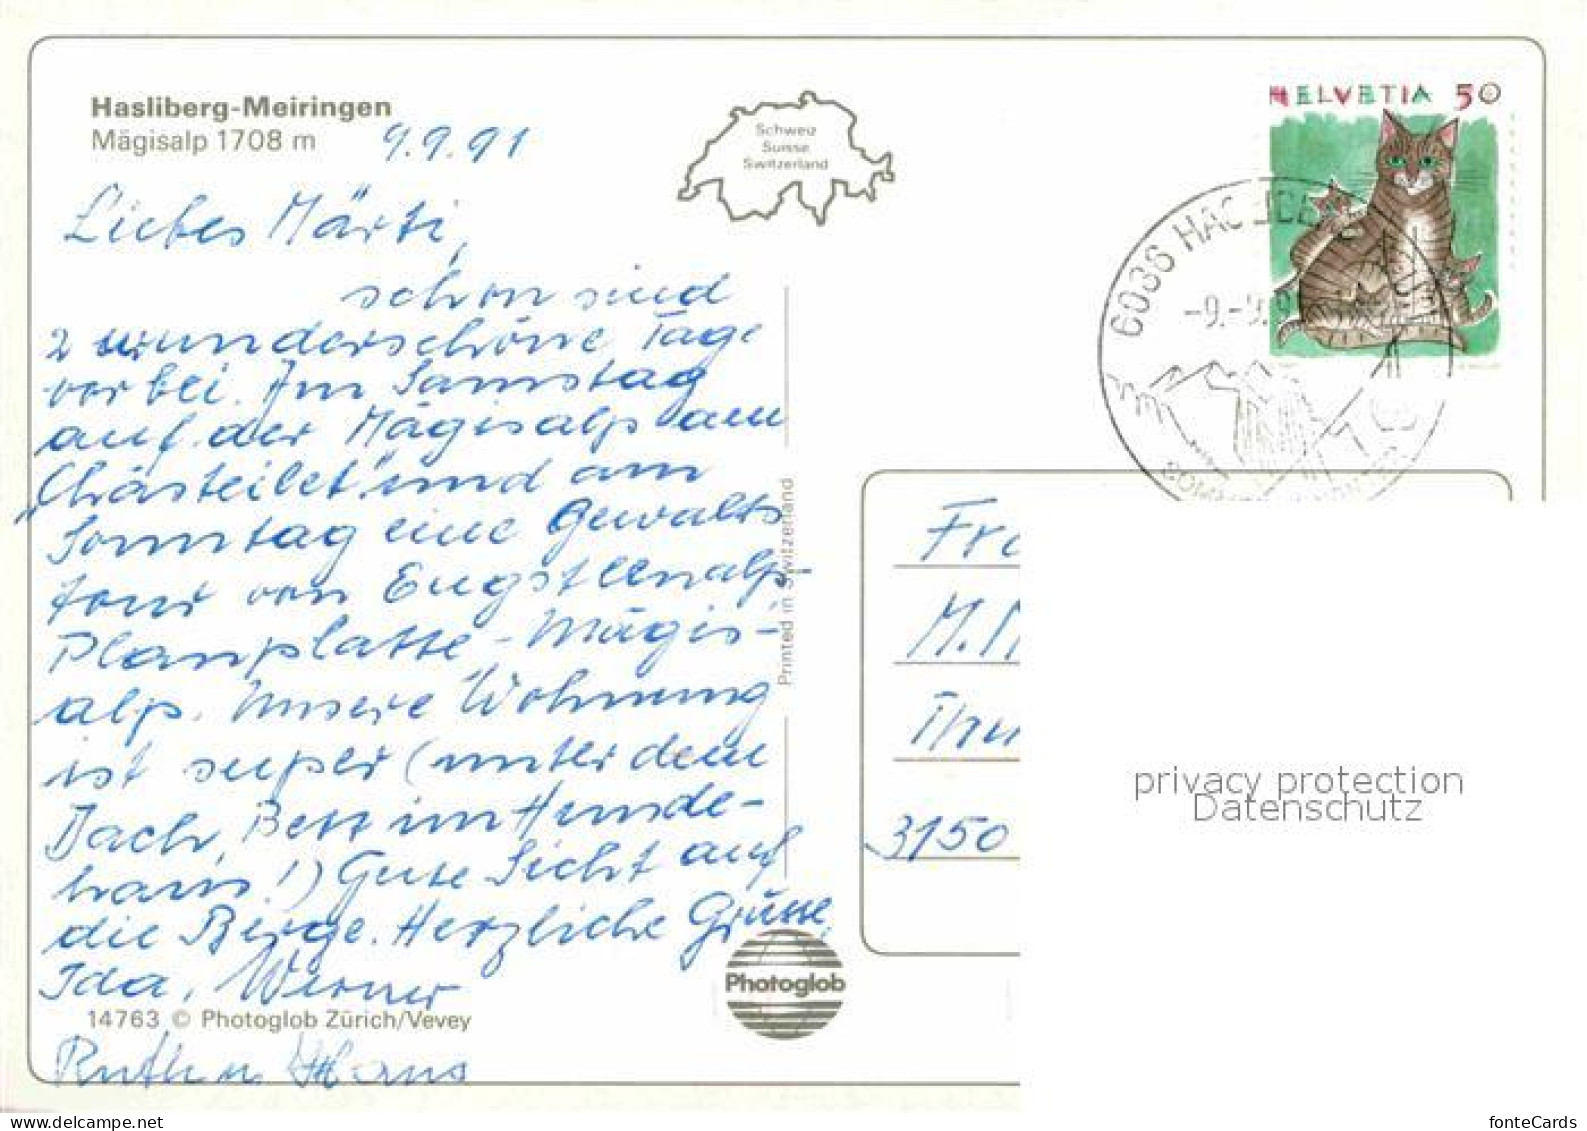 Hasliberg-Meiringen
Mägisalp 1708 m
9.9.91
Schweiz
Suisse
Switzerland
HELVETIA 50
6036 HAS
-9.-9.9
Liebes Märti,
schon sind
2 wunderschöne Tage
vorbei. Am Samstag
auf der Mägisalp am
„Chästeilet" und am
Sonntag eine Gewalts
tour von Engstlenalp-
Planplatte-Mägis-
alp. Unsere Wohnung
ist super (unter dem
Dach, Bett im Hunde-
haus!) Gute Sicht auf
die Berge. Herzliche Grüsse,
Ida, Werner
Ruth u. Hans
14763 © Photoglob Zürich/Vevey
Printed in Switzerland
Photoglob
Fra
M.
Thu
3150
privacy protection
Datenschutz
fonteCards